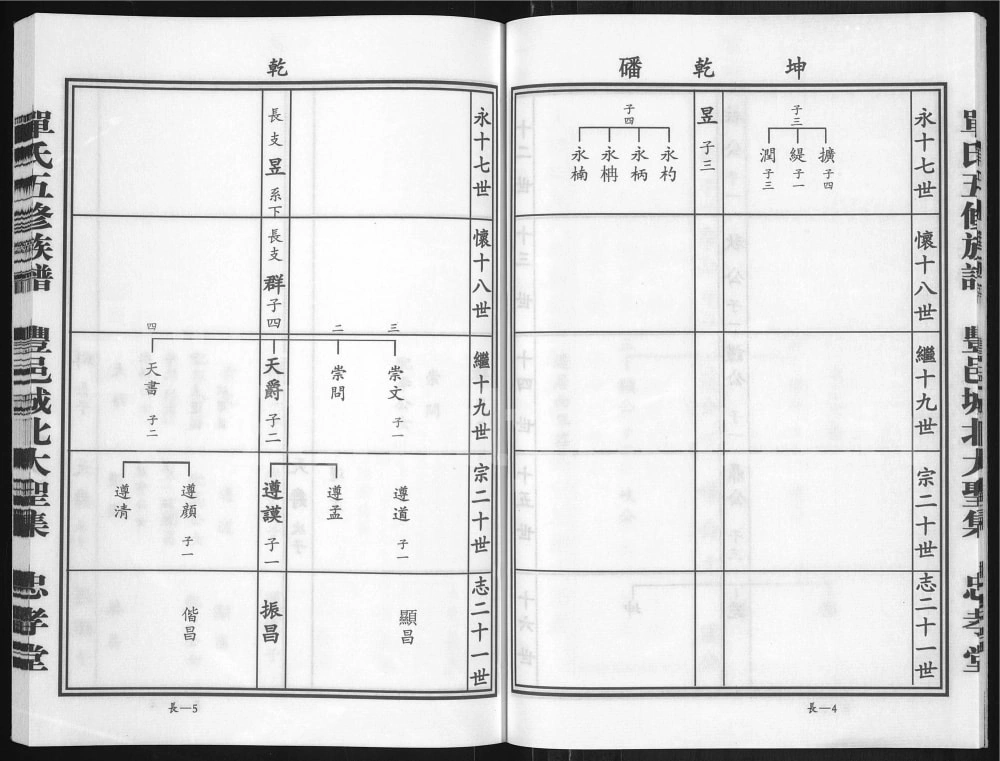 單氏五修族譜
豐邑城北大聖集
忠孝堂
坤
乾
磻
永十七世
懷十八世
繼十九世
宗二十世
志二十一世
子三
擴 子四
緹 子一
潤 子三
昱 子三
子四
永杓
永柄
永楠
長—4
乾
永十七世
懷十八世
繼十九世
宗二十世
志二十一世
長支
昱
系下
長支
群 子四
三
崇文 子一
二
崇問
天爵 子二
四
天書 子二
遵道 子一
遵孟
遵謨 子一
遵顏 子一
遵清
顯昌
振昌
偕昌
長—5
單氏五修族譜
豐邑城北大聖集
忠孝堂